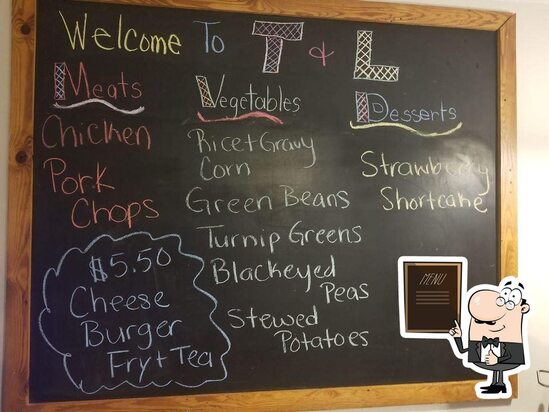 Welcome To T & L
Meats
Chicken
Pork
Chops
$5.50
Cheese
Burger
Fry + Tea
Vegetables
Rice + Gravy
Corn
Green Beans
Turnip Greens
Blackeyed
Peas
Stewed
Potatoes
Desserts
Strawberry
Shortcake
MENU